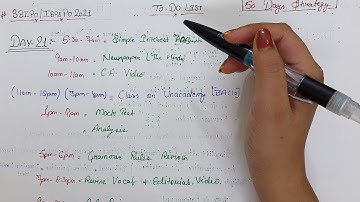 # SBI PO / IBPS PO 2021
To-Do List
50 Days Strategy
Day 21: 5:30 - 7am = Simple Interest
9am - 10am = Newspaper (The Hindu)
10am - 11am = C.A Video
(11am - 12pm) (3pm - 4pm) = Class on Unacademy
= Mock Test
+ Analysis
5pm - 6pm = Grammar Rules Revision
7pm - 8:30pm = Revise Vocab + Editorial Video.